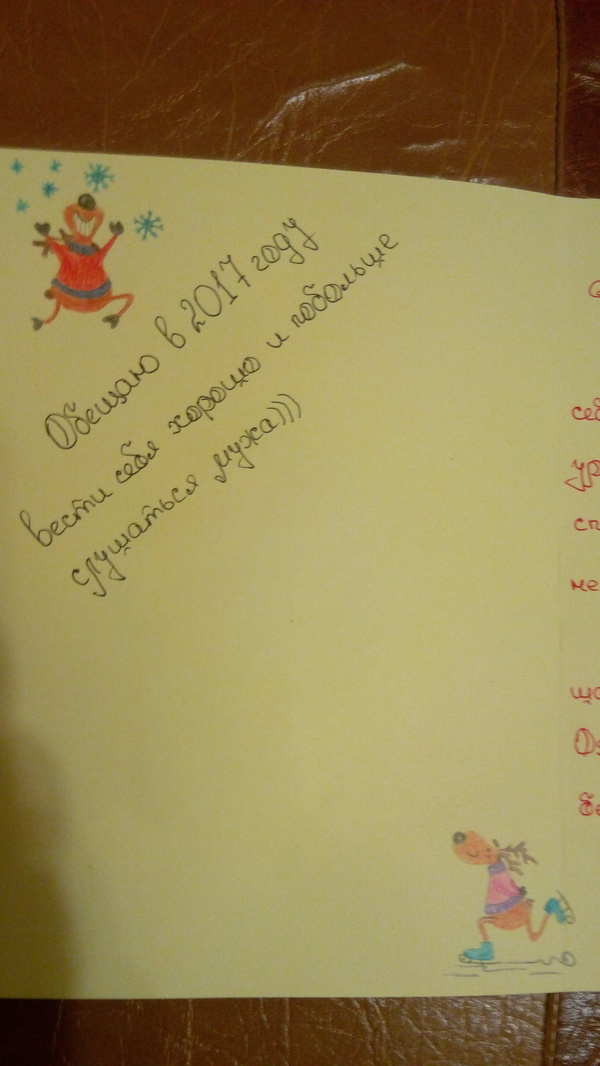 Обещаю в 2017 году
вести себя хорошо и побольше
слушаться мужа)))